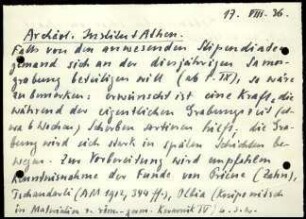 17. VIII. 26.
Archäol. Institut Athen.
Falls von den anwesenden Stipendiaten
jemand sich an der diesjährigen Samos-
grabung beteiligen will (ab 1. IX), so wäre
zu bemerken: erwünscht ist eine Kraft, die
während der eigentlichen Grabungszeit (et-
wa 6 Wochen) Scherben sortieren hilft. Die Gra-
bung wird sich stark in späten Schichten be-
wegen. Zur Vorbereitung wird empfohlen
Kenntnisnahme der Funde von Priene (Zahn),
Tschandarli (AM 1912, 344 ff.), Olbia (Knipowitsch
in Materialien z. röm.-germ. Keramik IV) u.s.w.